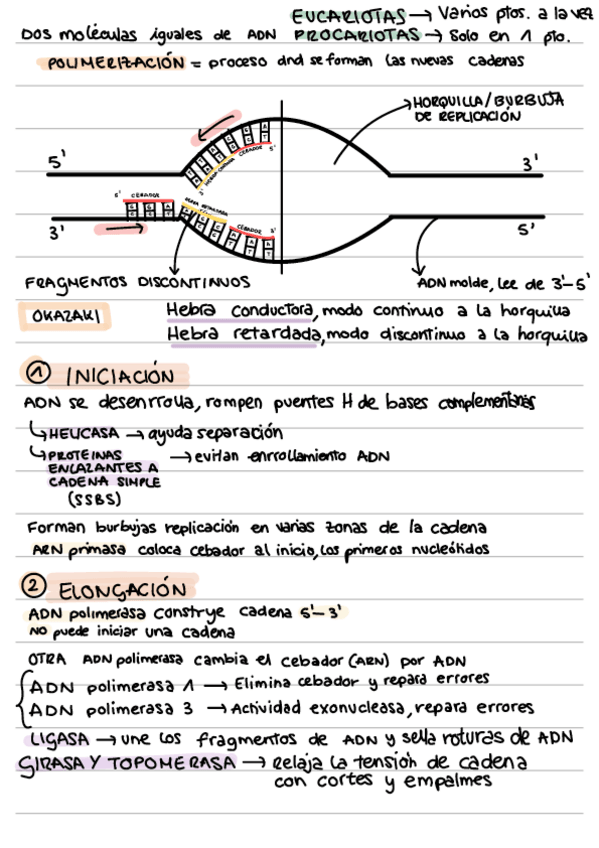 EUCARIOTAS → Varios ptos. a la vez
DOS moléculas iguales de ADN PROCARIOTAS → Solo en 1 pto.
POLIMERIZACIÓN = proceso dnd se forman las nuevas cadenas
HORQUILLA/BURBUJA
DE REPLICACIÓN
5'
3'
CEBADOR
5'
5'
CEBADOR
CEBADOR
3'
3'
5'
FRAGMENTOS DISCONTINUOS
ADN molde, lee de 3'-5'
OKAZAKI
Hebra conductora, modo continuo a la horquilla
Hebra retardada, modo discontinuo a la horquilla
① INICIACIÓN
ADN se desenrrolla, rompen puentes H de bases complementarias
↳ HELICASA → ayuda separación
↳ PROTEINAS → evitan enrrollamiento ADN
ENLAZANTES A
CADENA SIMPLE
(SSBS)
Forman burbujas replicación en varias zonas de la cadena
ARN primasa coloca cebador al inicio, los primeros nucleótidos
② ELONGACIÓN
ADN polimerasa construye cadena 5'-3'
NO puede iniciar una cadena
OTRA ADN polimerasa cambia el cebador (ARN) por ADN
ADN polimerasa 1 → Elimina cebador y repara errores
ADN polimerasa 3 → Actividad exonucleasa, repara errores
LIGASA → une los fragmentos de ADN y sella roturas de ADN
GIRASA Y TOPOMERASA → Relaja la tensión de cadena
con cortes y empalmes